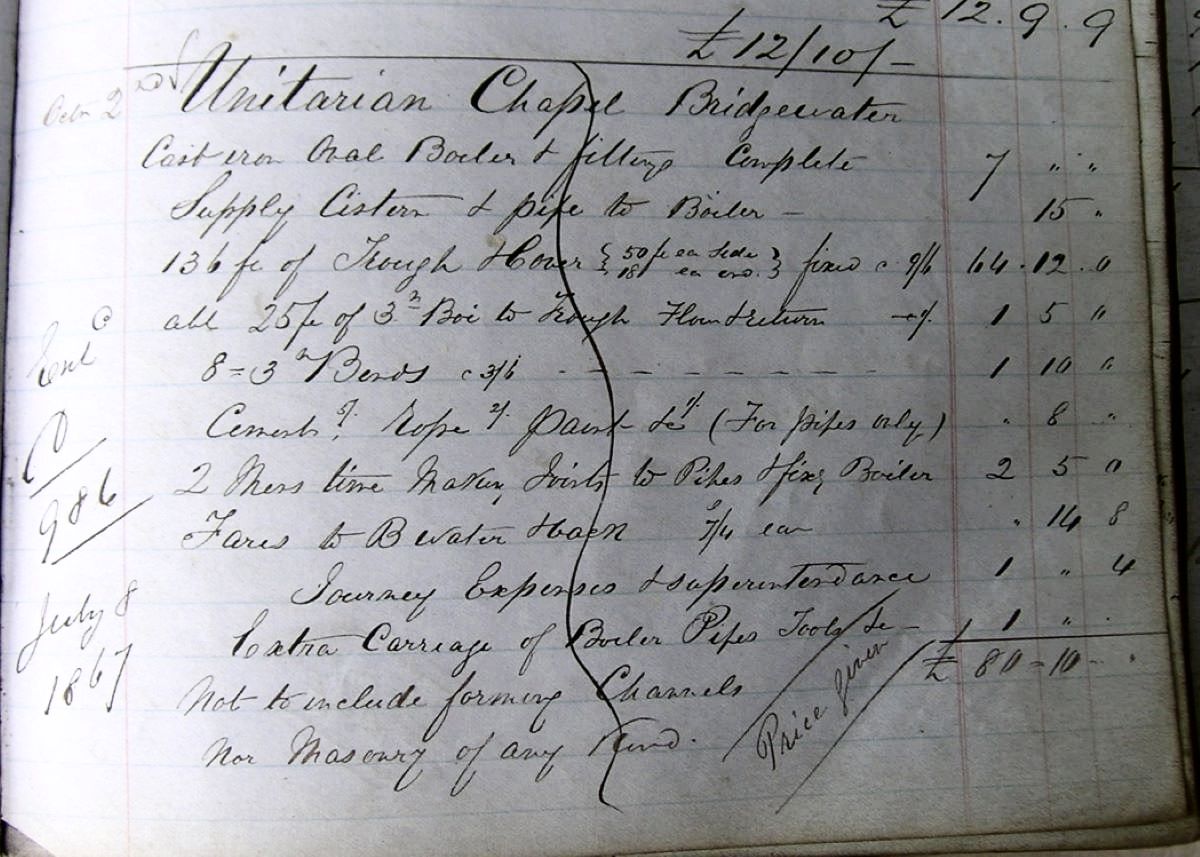 £ 12 . 9 . 9
£ 12/10/-
Octr 2 Unitarian Chapel Bridgewater
Cast iron Oval Boiler & fittings Complete 7 " "
Supply Cistern & pipe to Boiler - 15 "
136 ft of Trough & Cover { 50 ft ea side 18 ea end } fixed @ 9/6 64 . 12 . 0
abt 25 ft of 3 in to Trough Flow & return 1 5 "
8 = 3 in Bends @ 3/6 - - - - - - - - - 1 10 "
Cement Rope 2/ paint &c 1/ (For pipes only) " 8 "
2 Mens time Making Joints to Pipes & fixg Boiler 2 5 0
Fares to B water & back 7/4 ea " 14 8
Journey Expenses & superintendance 1 " 4
Extra Carriage of Boiler Pipes Tools &c - 1 " "
£ 80 = 10 - "
Not to include forming Channels
Nor Masonry of any Kind.
Price given
Ent
986
July 8
1867